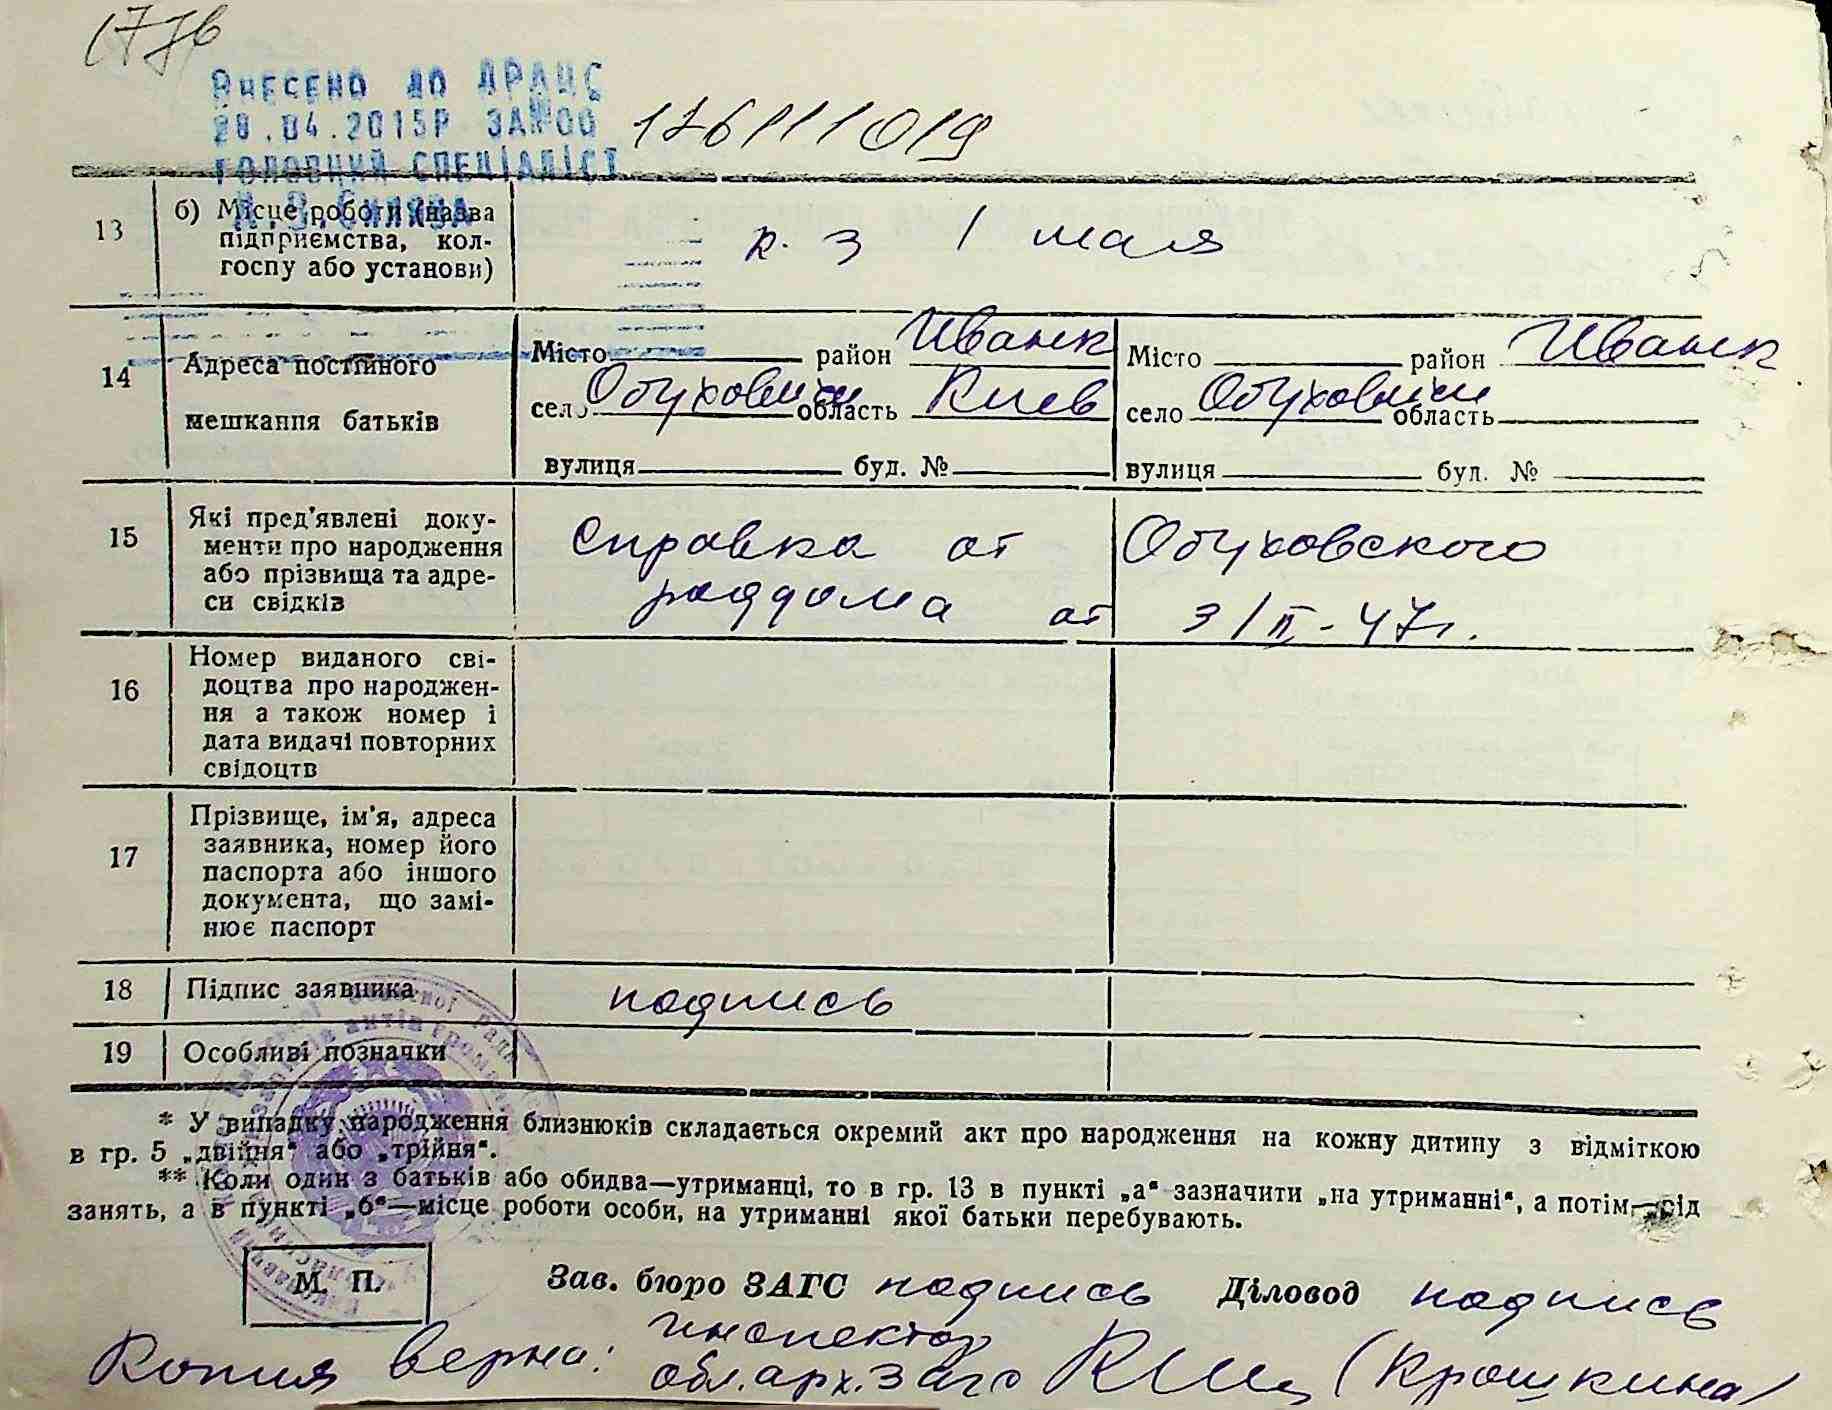 177в
ВНЕСЕНО ДО ДРАЦС
28.04.2015Р ЗА №00 176111019
ГОЛОВНИЙ СПЕЦІАЛІСТ
13 б) Місце роботи (назва
підприємства, кол-
госпу або установи)
к. з 1 мая
14 Адреса постійного
мешкання батьків
Місто район Иванк
село Обуховичи область Киев
вулиця буд. №
Місто район Иванк
село Обуховичи область
вулиця буд. №
15 Які пред'явлені доку-
менти про народження
або прізвища та адре-
си свідків
Справка от Обуховского
роддома от 3/II-47г.
16 Номер виданого сві-
доцтва про народжен-
ня а також номер і
дата видачі повторних
свідоцтв
17 Прізвище, ім'я, адреса
заявника, номер його
паспорта або іншого
документа, що замі-
нює паспорт
18 Підпис заявника подпись
19 Особливі позначки
* У випадку народження близнюків складається окремий акт про народження на кожну дитину з відміткою
в гр. 5 „двійня“ або „трійня“.
** Коли один з батьків або обидва—утриманці, то в гр. 13 в пункті „а“ зазначити „на утриманні“, а потім— рід
занять, а в пункті „б“—місце роботи особи, на утриманні якої батьки перебувають.
М. П.
Зав. бюро ЗАГС подпись Діловод подпись
Копия верна: инспектор
обл.арх.Загс (Крошкина)